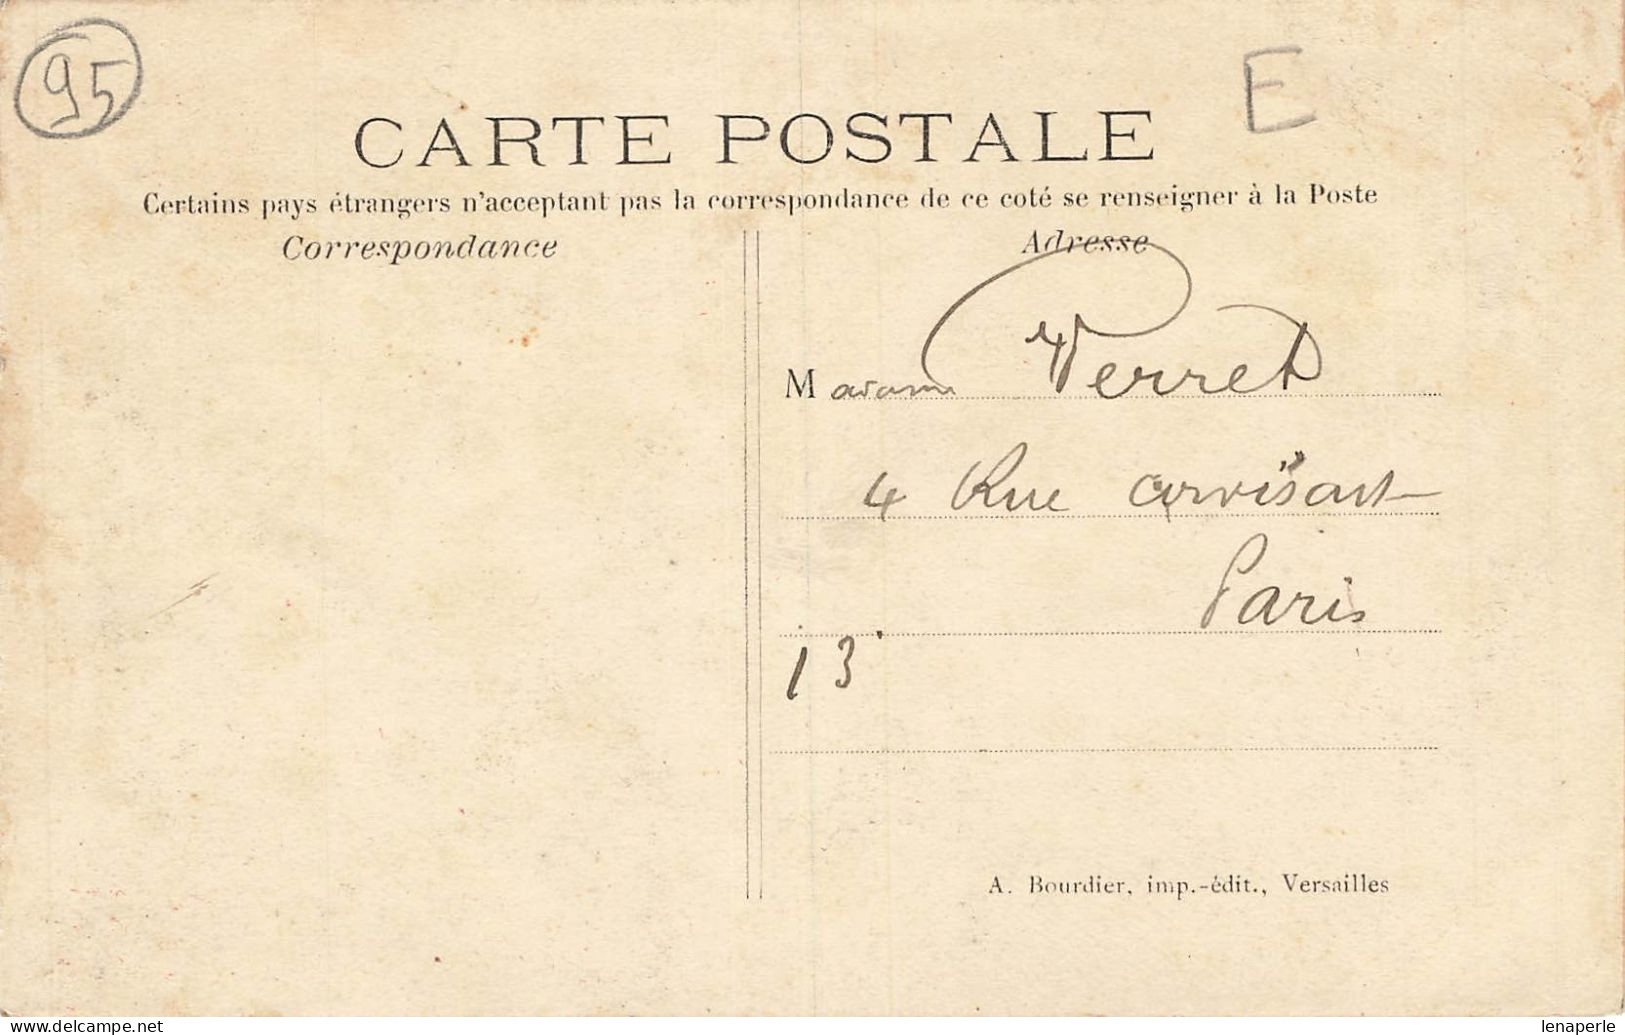 95
E
CARTE POSTALE
Certains pays étrangers n'acceptant pas la correspondance de ce coté se renseigner à la Poste
Correspondance
Adresse
Madame Verret
4 Rue Corvisart
Paris
13
A. Bourdier, imp.-édit., Versailles
www.delcampe.net
lenaperle